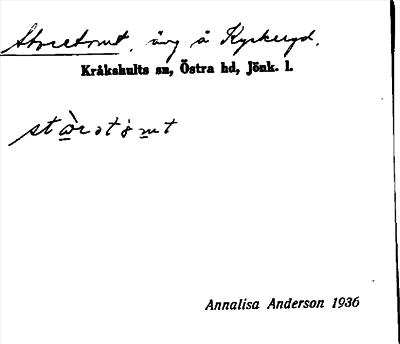 Storetomt, äng å Kyrkeryd.
Kråkshults sn, Östra hd, Jönk. l.
stὰrət i̯ m t
Annalisa Anderson 1936